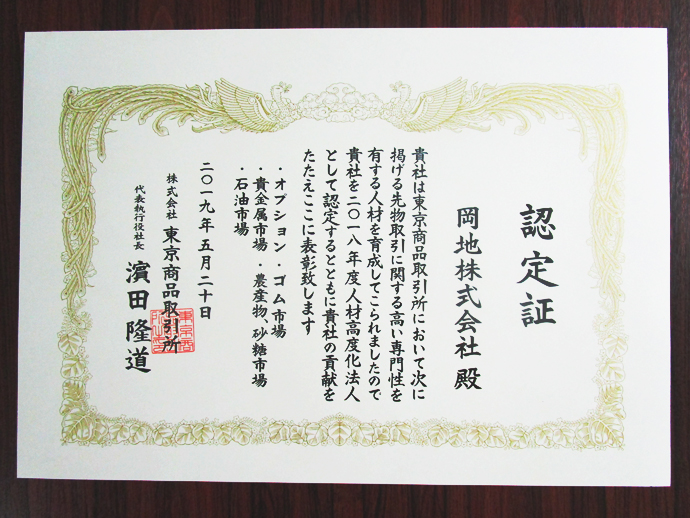 認定証
岡地株式会社 殿
貴社は東京商品取引所において次に
掲げる先物取引に関する高い専門性を
有する人材を育成してこられましたので
貴社を二〇一八年度人材高度化法人
として認定するとともに貴社の貢献を
たたえここに表彰致します
・オプション・ゴム市場
・貴金属市場・農産物、砂糖市場
・石油市場
二〇一九年五月二十日
株式会社 東京商品取引所
代表執行役社長 濱田隆道